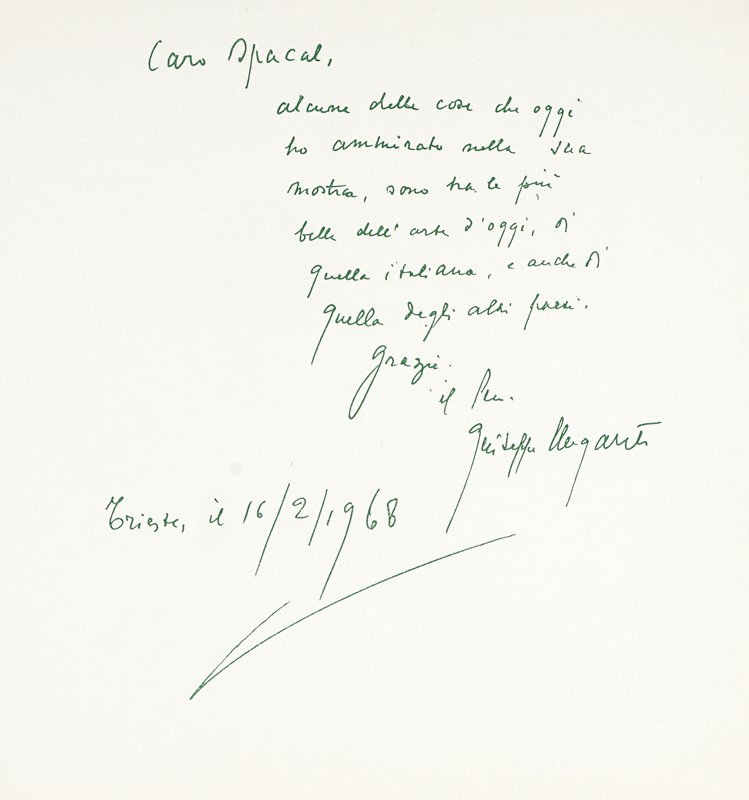 Caro Spacal,
alcune delle cose che oggi
ho ammirato nella sua
mostra, sono tra le più
belle dell'arte d'oggi, di
quella italiana, e anche di
quella degli altri paesi.
Grazie.
il Suo
Giuseppe Ungaretti
Trieste, il 16/2/1968